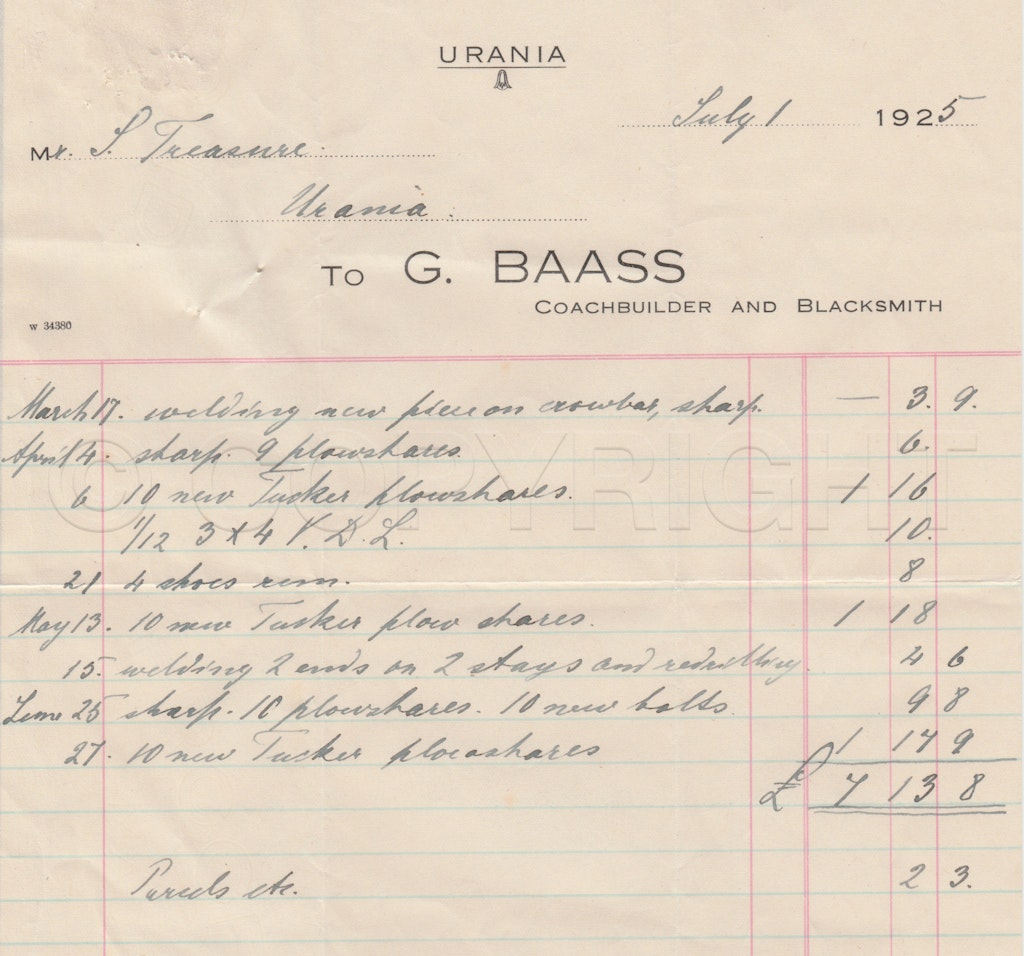 URANIA
July 1 1925
Mr. S. Treasure.
Urania.
To G. BAASS
COACHBUILDER AND BLACKSMITH
W 34380
March 17. welding new piece on crowbar, sharp. — 3. 9.
April 4. sharp. 9 plowshares. 6.
6 10 new Tucker plowshares. 1 16
1/12 3 x 4 V. D. L. 10.
21 4 shoes rem. 8
May 13. 10 new Tucker plow shares. 1 18
15. welding 2 ends on 2 stays and redrilling. 4 6
June 25 sharp. 10 plowshares. 10 new bolts. 9 8
27. 10 new Tucker plowshares 1 17 9
£ 7 13 8
Parcels etc. 2 3.
© COPYRIGHT